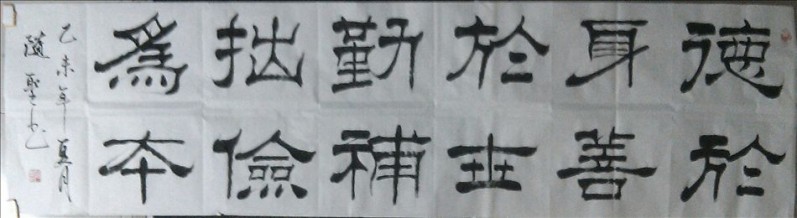 德於
身善
於世
勤補
拙儉
為本
乙未年夏月
隨聖書